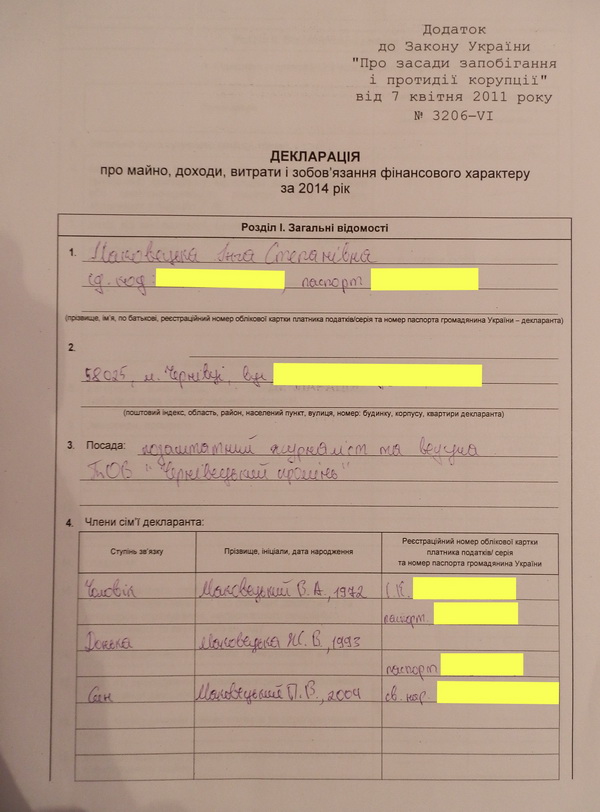 Додаток
до Закону України
"Про засади запобігання
і протидії корупції"
від 7 квітня 2011 року
№ 3206–VI
ДЕКЛАРАЦІЯ
про майно, доходи, витрати і зобов'язання фінансового характеру
за 2014 рік
Розділ І. Загальні відомості
1. Маковецька Інга Степанівна
ід. код: паспорт:
(прізвище, ім'я, по батькові, реєстраційний номер облікової картки платника податків/серія та номер паспорта громадянина України – декларанта)
2.
58025, м. Чернівці, вул
(поштовий індекс, область, район, населений пункт, вулиця, номер: будинку, корпусу, квартири декларанта)
3. Посада: позаштатний журналіст та ведуча
ТОВ "Чернівецький промінь"
4. Члени сім'ї декларанта:
Ступінь зв'язку
Прізвище, ініціали, дата народження
Реєстраційний номер облікової картки
платника податків/ серія
та номер паспорта громадянина України
Чоловік Маковецький В. А., 1972 І.К.
паспорт.
Донька Маковецька В., 1993
паспорт
Син Маковецький П.В., 2004 св. нар.